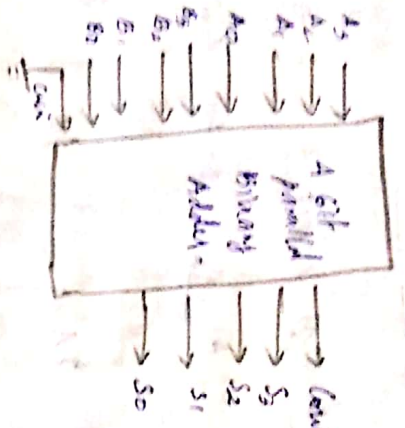 A3
A2
A1
A0
B3
B2
B1
B0
Cin
4 Bit
parallel
Binary
Adder
Cout
S3
S2
S1
S0